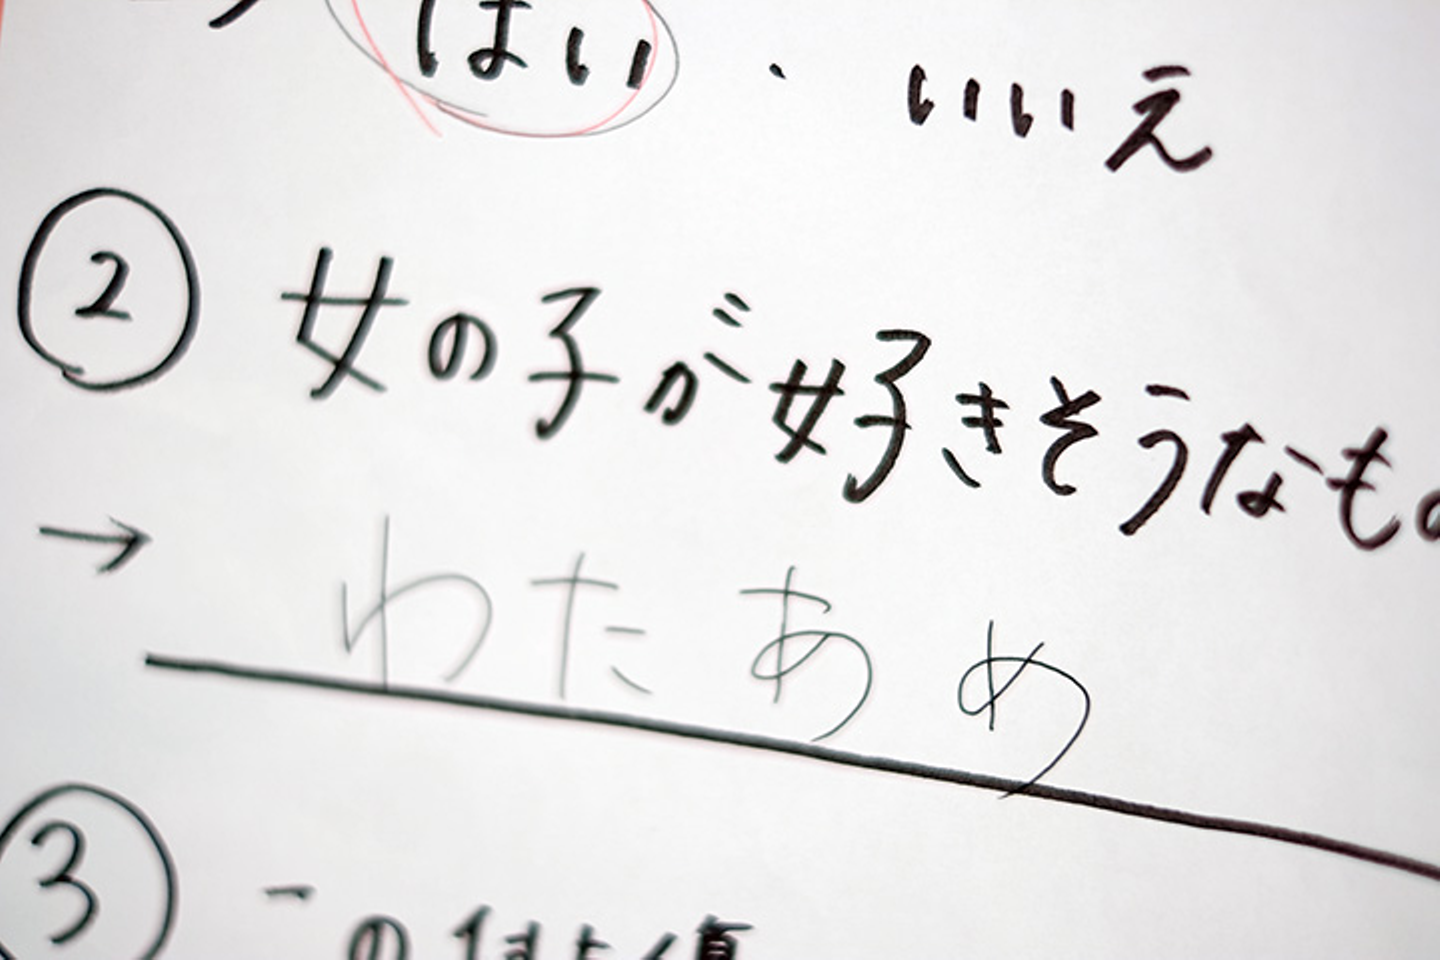 はい ・ いいえ
② 女の子が好きそうなもの
→ わたあめ
③